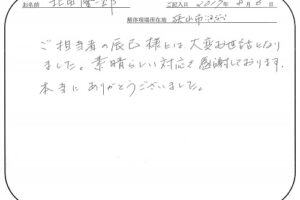 お名前 北田隆一郎 ご記入日 2019年8月8日
解体現場所在地
ご担当者の辰己様には大変お世話になり
ました。素晴らしい対応で感謝しております。
本当にありがとうございました。